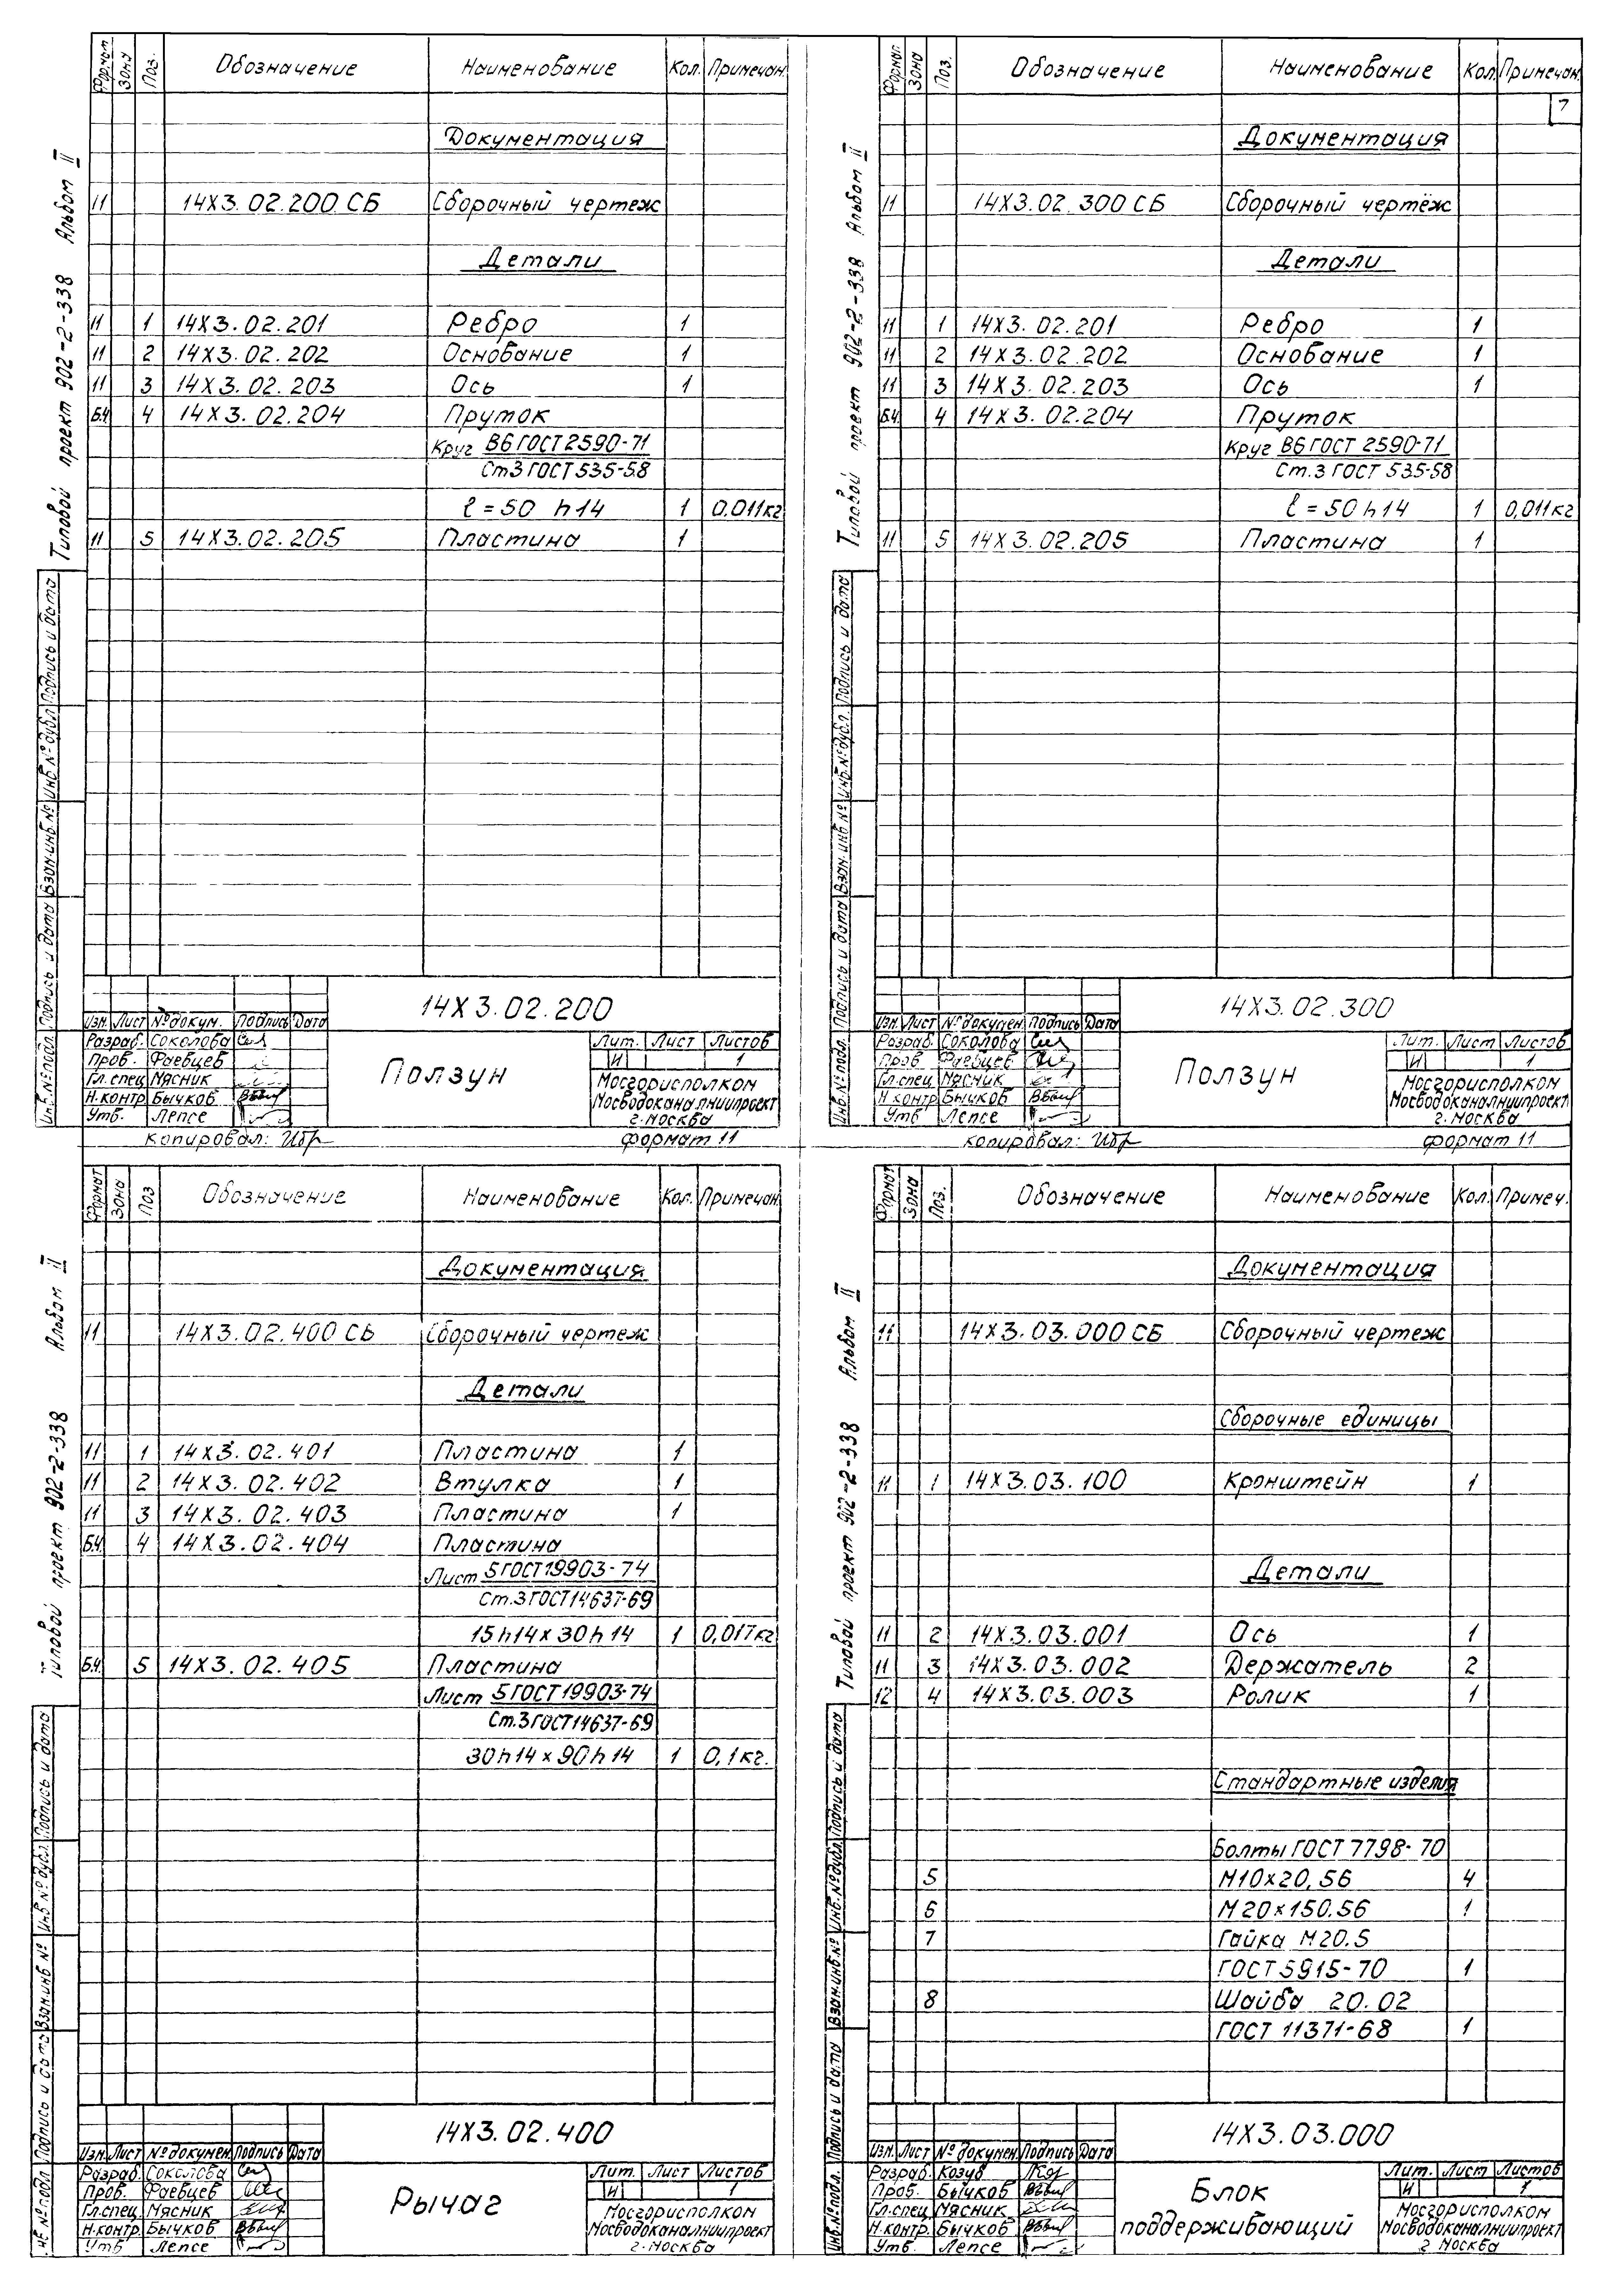 Формат Зону Поз. Обозначение Наименование Кол. Примечан.
Документация
11 14Х3.02.200 СБ Сборочный чертеж
Детали
11 1 14Х3.02.201 Ребро 1
11 2 14Х3.02.202 Основание 1
11 3 14Х3.02.203 Ось 1
Б.Ч. 4 14Х3.02.204 Пруток
Круг В6 ГОСТ 2590-71
Ст3 ГОСТ 535-58
ℓ=50 h14 1 0,011кг
11 5 14Х3.02.205 Пластина 1
Типовой проект 902-2-338 Альбом II
Инв.№подл. Подпись и дата Взам.инв.№ Инв.№дубл Подпись и дата
14Х3.02.200
Изм. Лист №докум. Подпись Дата
Разраб. Соколова
Пров. Фаевцев
Гл.спец Мясник
Н.контр Бычков
Утв. Лепсе
Ползун
Лит. Лист Листов
И 1
Мосгорисполком
Мосводоканалниипроект
г.Москва
копировал:
формат 11
Формат Зона Поз. Обозначение Наименование Кол. Примечан.
7
Документация
11 14Х3.02.300 СБ Сборочный чертёж
Детали
11 1 14Х3.02.201 Ребро 1
11 2 14Х3.02.202 Основание 1
11 3 14Х3.02.203 Ось 1
Б.Ч. 4 14Х3.02.204 Пруток
Круг В6 ГОСТ 2590-71
Ст.3 ГОСТ 535-58
ℓ=50 h14 1 0,011кг
11 5 14Х3.02.205 Пластина 1
Типовой проект 902-2-338 Альбом II
Инв.№подл. Подпись и дата Взам.инв.№ Инв.№дубл. Подпись и дата
14Х3.02.300
Изм. Лист №докумен. Подпись Дата
Разраб. Соколова
Пров Фаевцев
Гл.спец Мясник
Н контр Бычков
Утв Лепсе
Ползун
Лит. Лист Листов
И 1
Мосгорисполком
Мосводоканалниипроект
г.Москва
копировал:
формат 11
Формат Зона Поз Обозначение Наименование Кол. Примечан.
Документация
11 14Х3.02.400 СБ Сборочный чертеж
Детали
11 1 14Х3.02.401 Пластина 1
11 2 14Х3.02.402 Втулка 1
11 3 14Х3.02.403 Пластина 1
Б.Ч. 4 14Х3.02.404 Пластина
Лист 5 ГОСТ 19903-74
Ст.3 ГОСТ 14637-69
15h14×30h14 1 0,017кг
Б.Ч. 5 14Х3.02.405 Пластина
Лист 5 ГОСТ 19903-74
Ст.3 ГОСТ 14637-69
30h14×90h14 1 0,1кг.
Типовой проект 902-2-338 Альбом II
Подпись и дата Взам.инв № Инв.№дубл. Подпись и дата
14Х3.02.400
Изм. Лист №докумен. Подпись Дата
Разраб. Соколова
Пров. Фаевцев
Гл.спец. Мясник
Н.контр. Бычков
Утв Лепсе
Рычаг
Лит. Лист Листов
И 1
Мосгорисполком
Мосводоканалниипроект
г.Москва
Формат Зона Поз. Обозначение Наименование Кол. Примеч.
Документация
11 14Х3.03.000 СБ Сборочный чертеж
Сборочные единицы
11 1 14Х3.03.100 Кронштейн 1
Детали
11 2 14Х3.03.001 Ось 1
11 3 14Х3.03.002 Держатель 2
12 4 14Х3.03.003 Ролик 1
Стандартные изделия
Болты ГОСТ 7798-70
5 М10×20,56 4
6 М20×150.56 1
7 Гайка М20.5
ГОСТ 5915-70 1
8 Шайба 20.02
ГОСТ 11371-68 1
Типовой проект 902-2-338 Альбом II
Инв.№подл. Подпись и дата Взам.инв.№ Инв.№дубл. Подпись и дата
14Х3.03.000
Изм. Лист №докумен. Подпись Дата
Разраб. Козуб
Пров. Бычков
Гл.спец. Мясник
Н.контр. Бычков
Утв. Лепсе
Блок
поддерживающий
Лит. Лист Листов
И 1
Мосгорисполком
Мосводоканалниипроект
г Москва